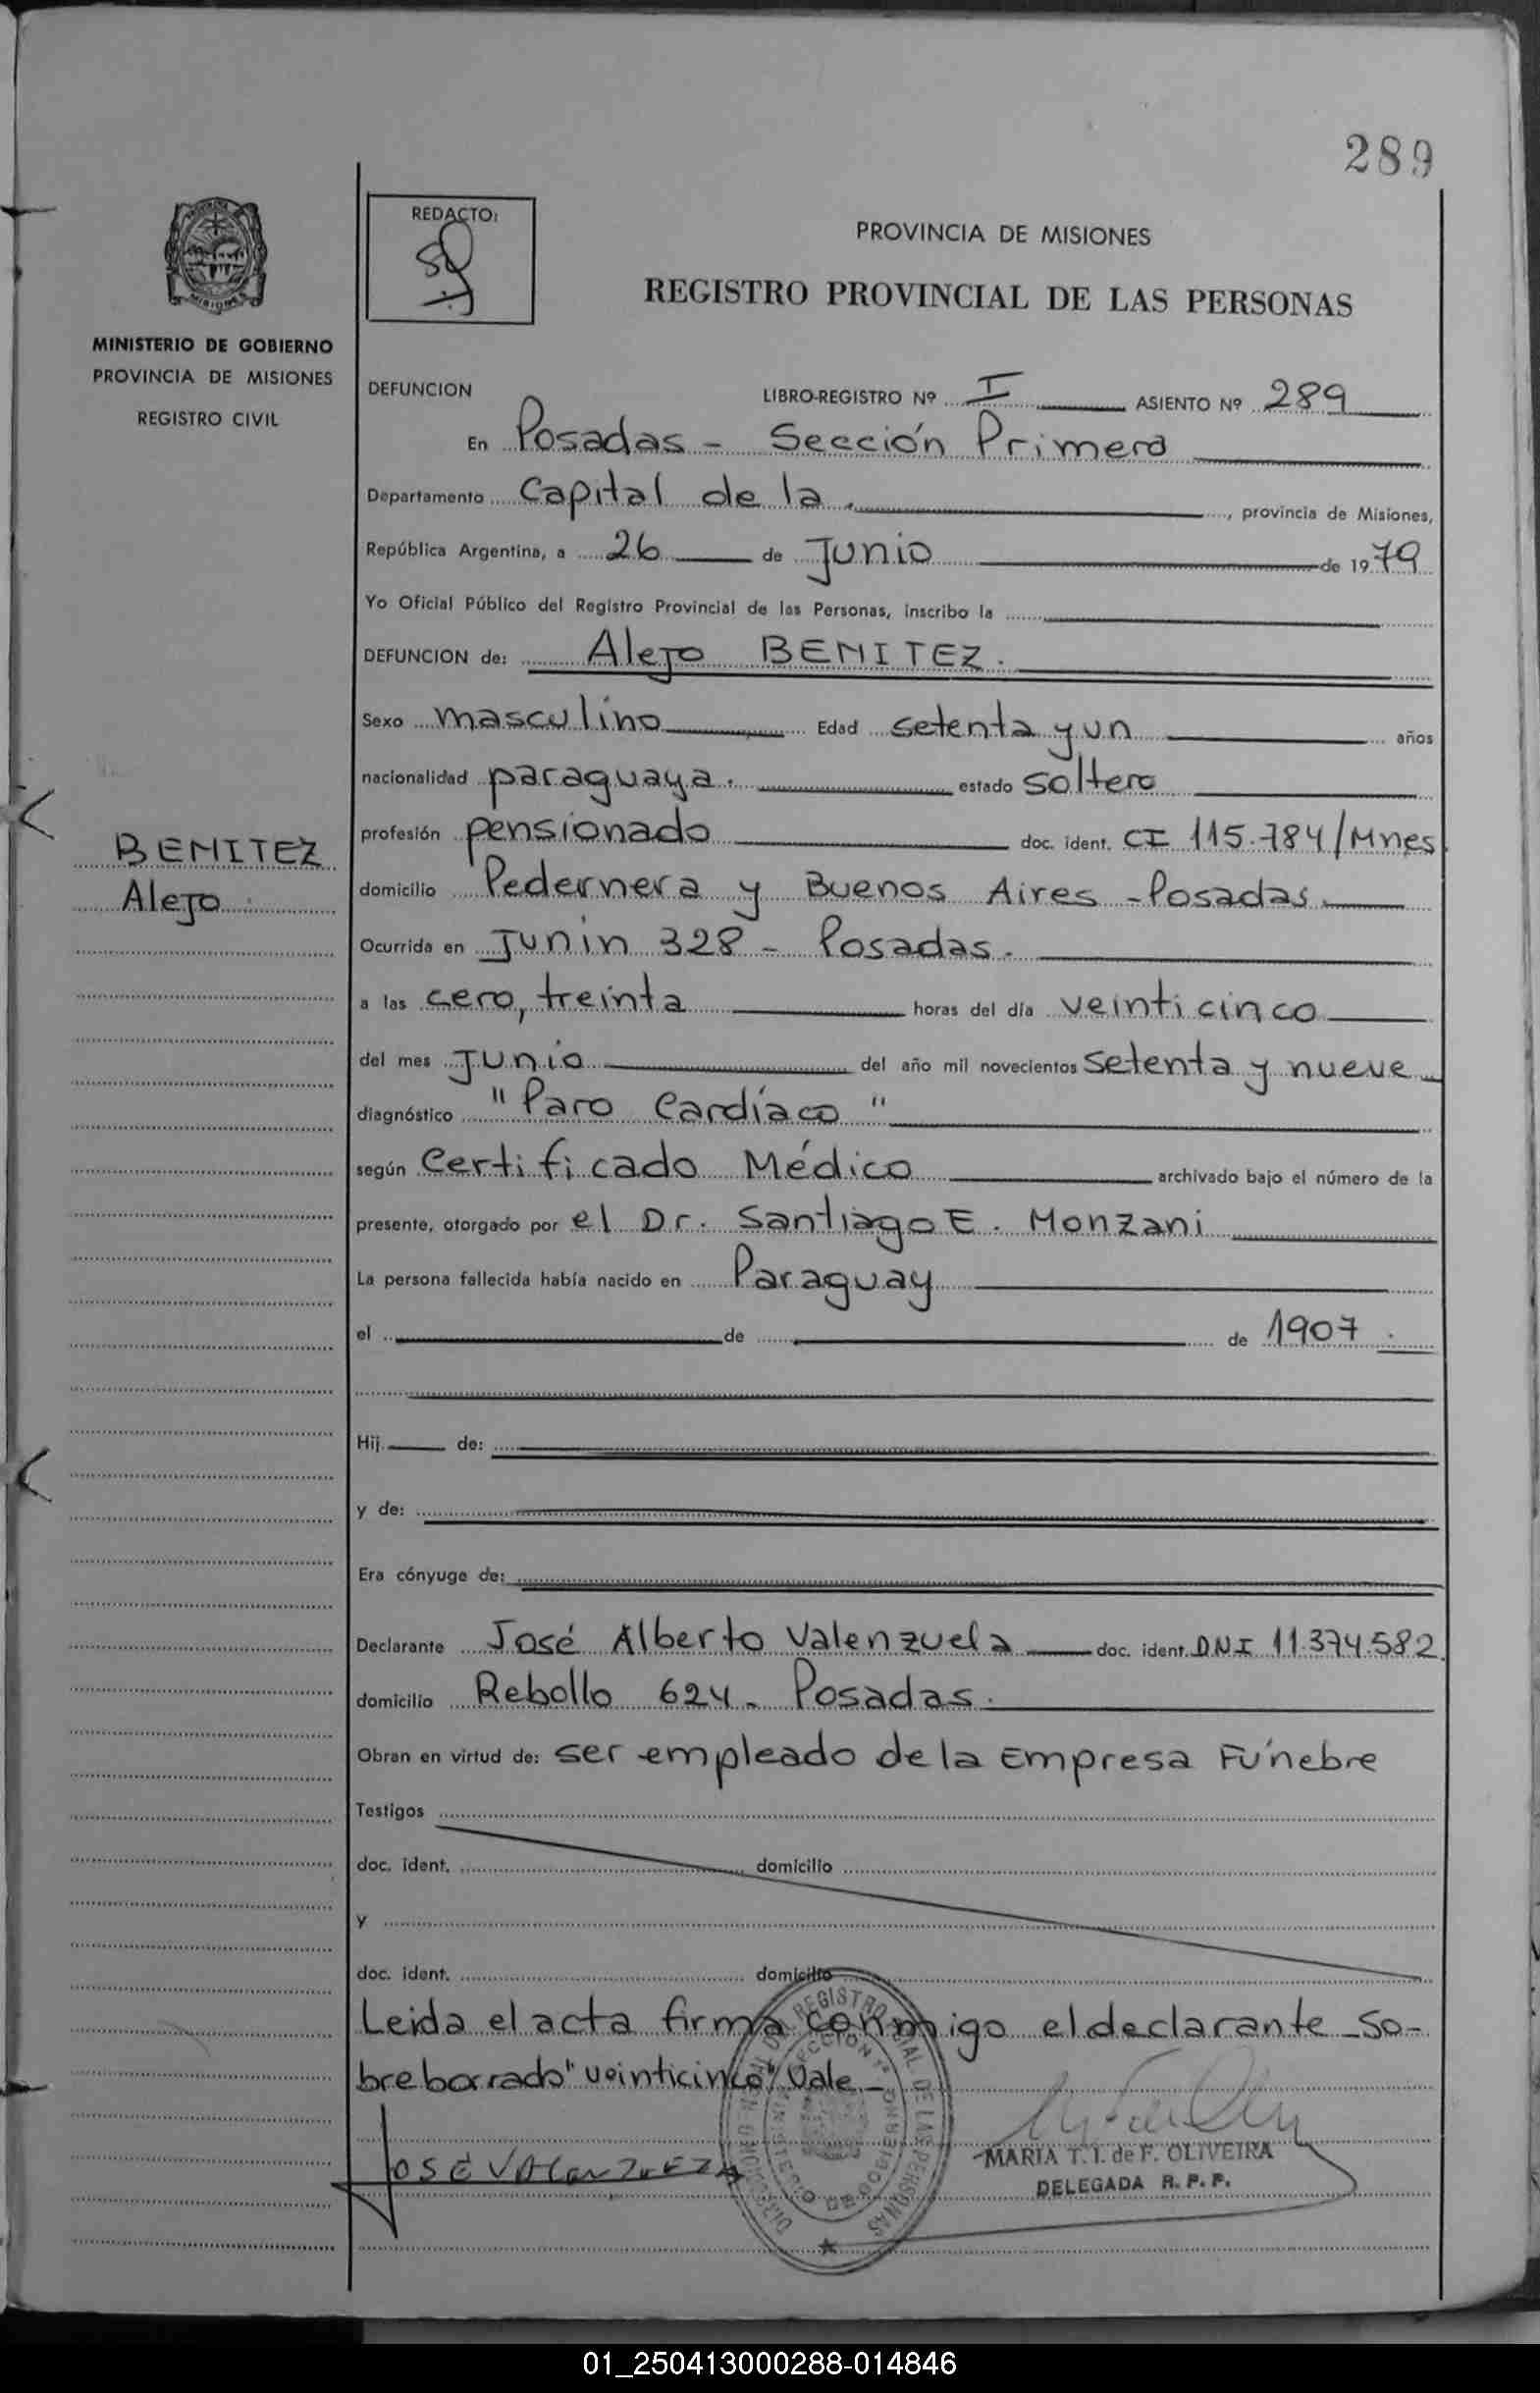 289
REDACTO:
PROVINCIA DE MISIONES
REGISTRO PROVINCIAL DE LAS PERSONAS
MISIONES
MINISTERIO DE GOBIERNO
PROVINCIA DE MISIONES
REGISTRO CIVIL
DEFUNCION LIBRO-REGISTRO Nº I ASIENTO Nº 289
En Posadas - Sección Primera
Departamento Capital de la , provincia de Misiones,
República Argentina, a 26 de Junio de 1979
Yo Oficial Público del Registro Provincial de las Personas, inscribo la
DEFUNCION de: Alejo BENITEZ.
Sexo masculino Edad setenta y un años
nacionalidad paraguaya. estado soltero
profesión pensionado doc. ident. CI 115.784/Mnes.
BENITEZ
Alejo
domicilio Pedernera y Buenos Aires - Posadas.
Ocurrida en Junin 328 - Posadas.
a las cero, treinta horas del día veinticinco
del mes Junio del año mil novecientos setenta y nueve
diagnóstico "Paro Cardíaco"
según Certificado Médico archivado bajo el número de la
presente, otorgado por el Dr. Santiago E. Monzani
La persona fallecida había nacido en Paraguay
el de de 1907.
Hij de:
y de:
Era cónyuge de:
Declarante José Alberto Valenzuela doc. ident. DNI 11.374.582
domicilio Rebollo 624 - Posadas.
Obran en virtud de: ser empleado de la Empresa Fúnebre
Testigos
doc. ident. domicilio
y
doc. ident. domicilio
Leida el acta firma conmigo el declarante - So-
breborrado "veinticinco" Vale -
JOSÉ VALENZUELA
MARIA T. I. de F. OLIVEIRA
DELEGADA R. P. P.
DIRECCION GENERAL DEL REGISTRO PROVINCIAL DE LAS PERSONAS
SECCION 1ª
MINISTERIO DE GOBIERNO
01_250413000288-014846